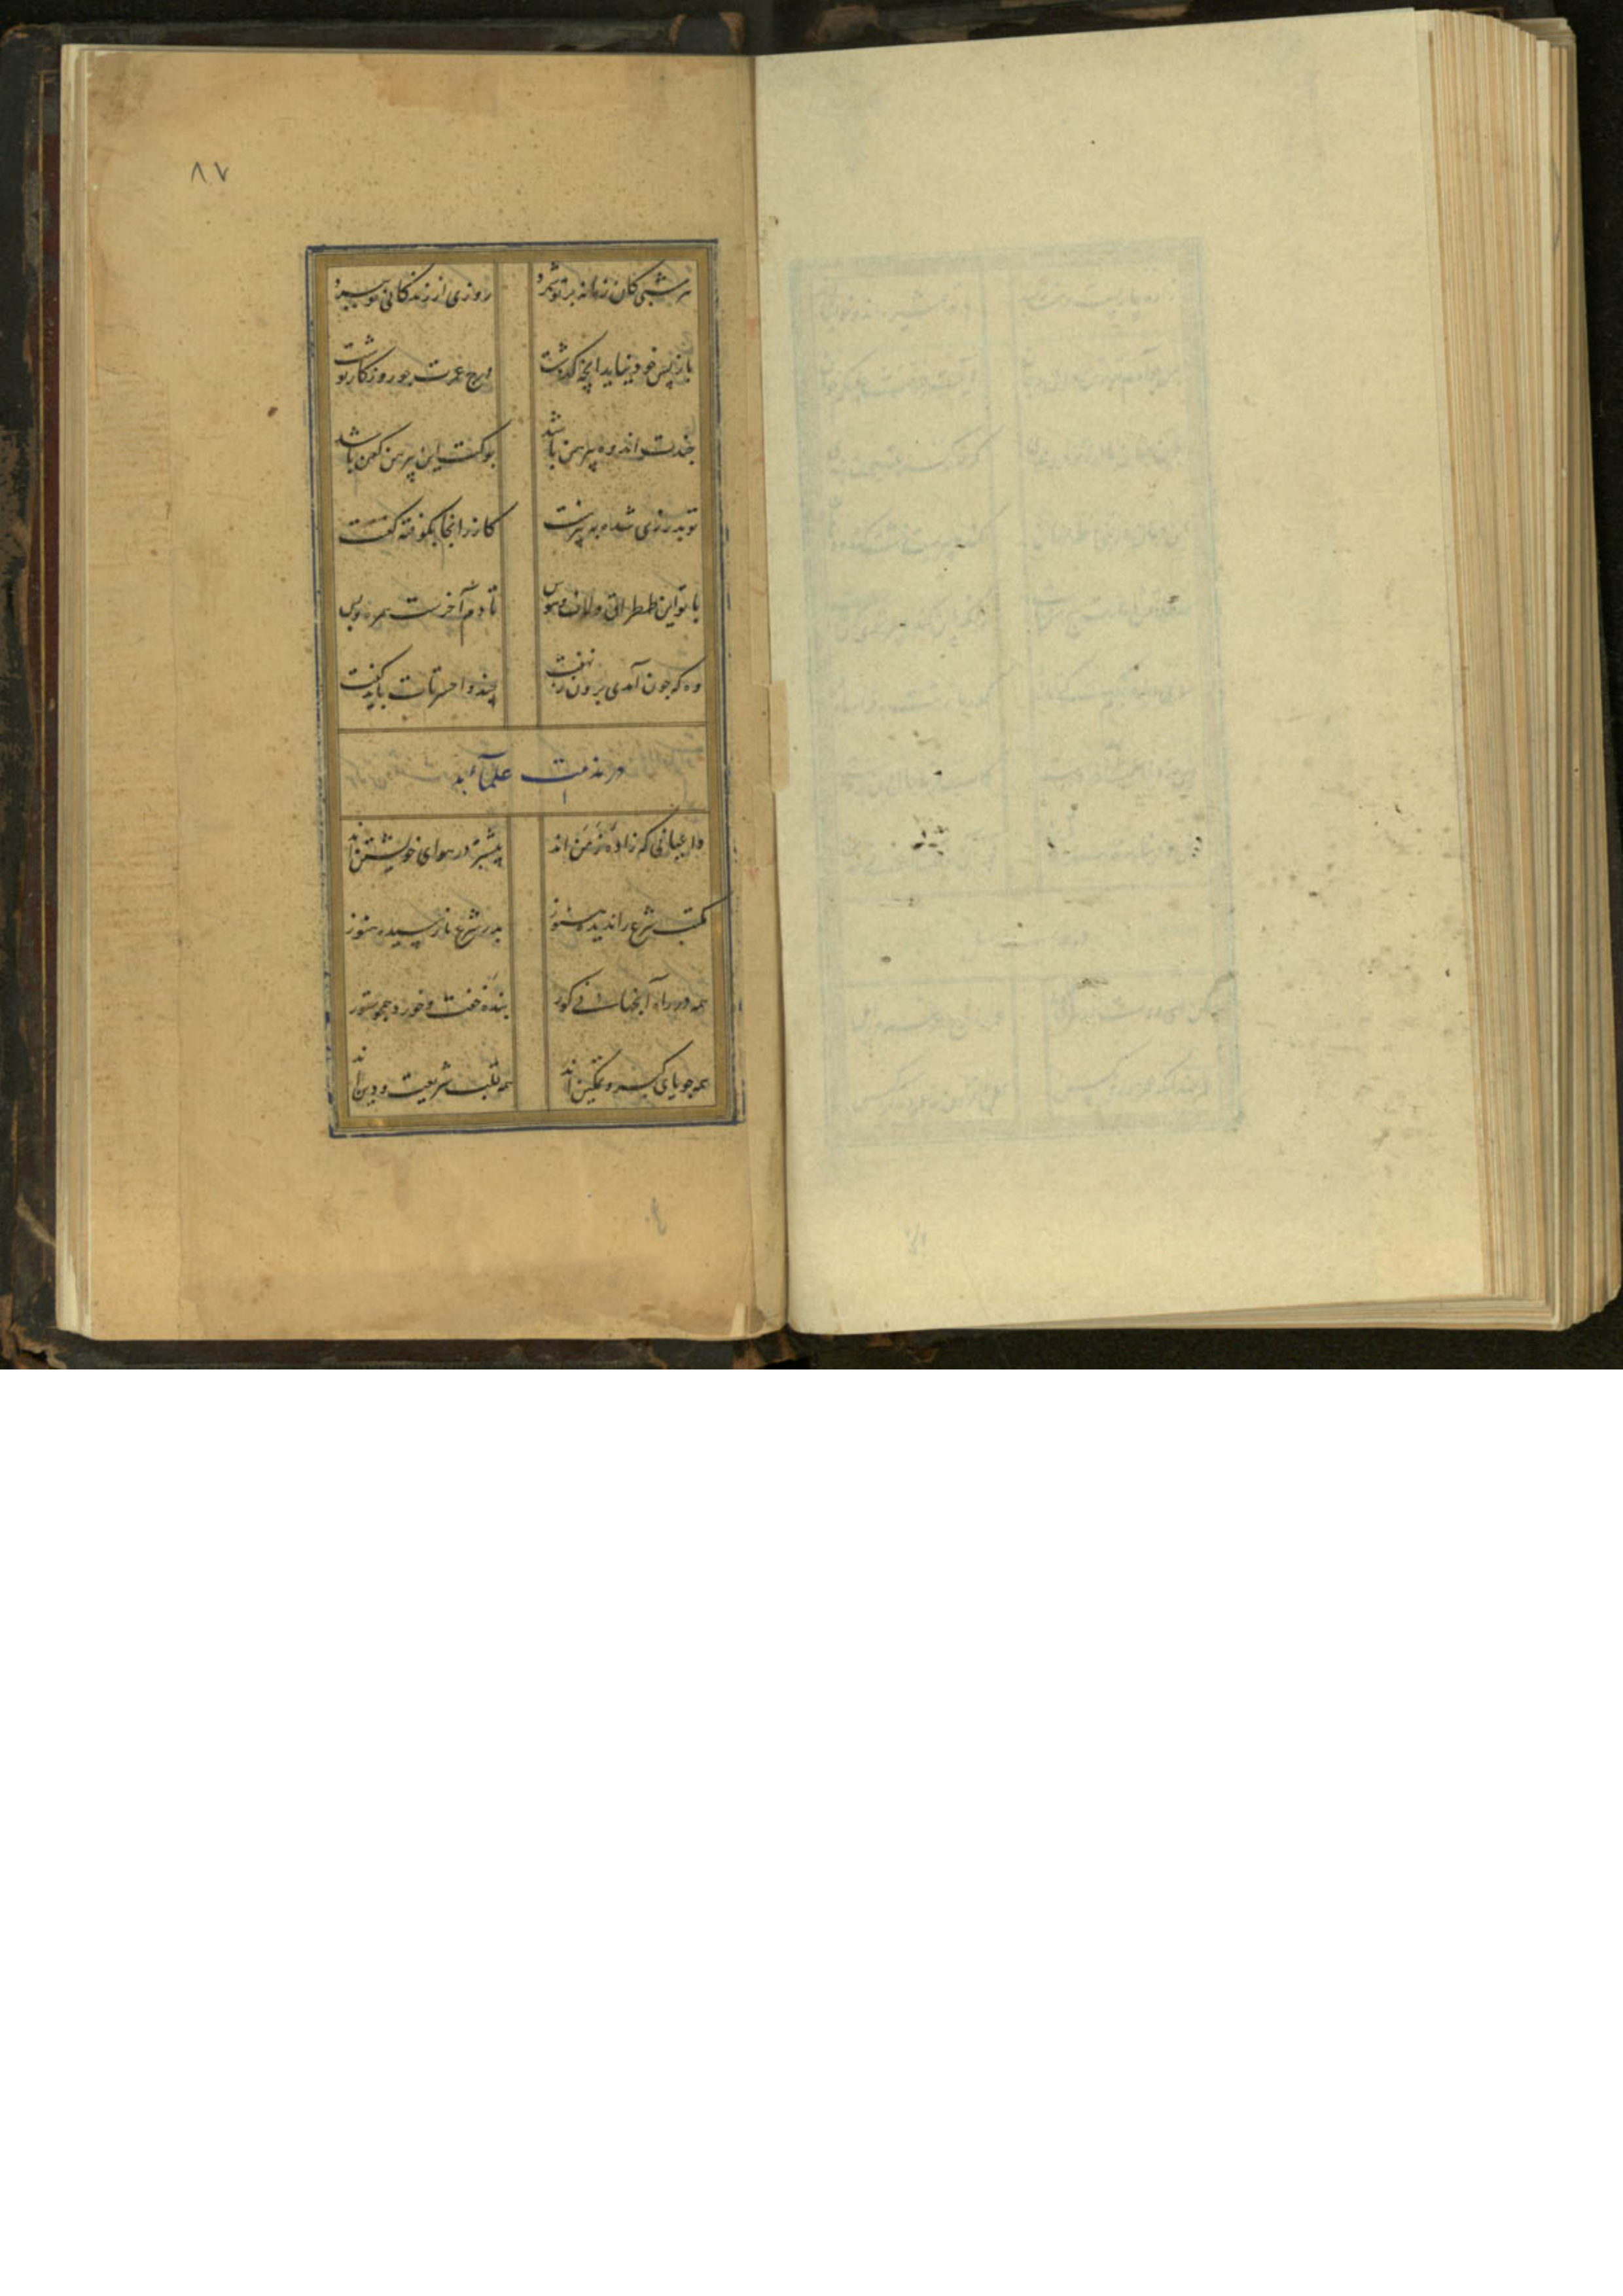 ۸۷
هر شبی کان زمانه بر تو شمرد روزی از زندگانی تو ببرد
باز پس خود نیاید آنچه گذشت درج عمرت چو روزگار نوشت
چندت اندوه پیرهن باشد بوکت این پیرهن کفن باشد
تو بدرزی شده به پیرهنت گازر آنجا بکوفته کفنت
با تو این طمطراق و لاف و هوس تا دم آخرست همره و بس
وه که چون آمدی برون ز نهفت چند واحسرتات باید گفت
در مذمت علماء بد
واعیانی که زاده زمن اند بیشتر در هوای خویشتن اند
کتب شرع را ندیده هنوز بدر شرع نارسیده هنوز
همه در راه آنجهانی کور بنده خفت و خورد همچو ستور
همه جویای کبر و تمکین اند همه قلب شریعت و دین اند